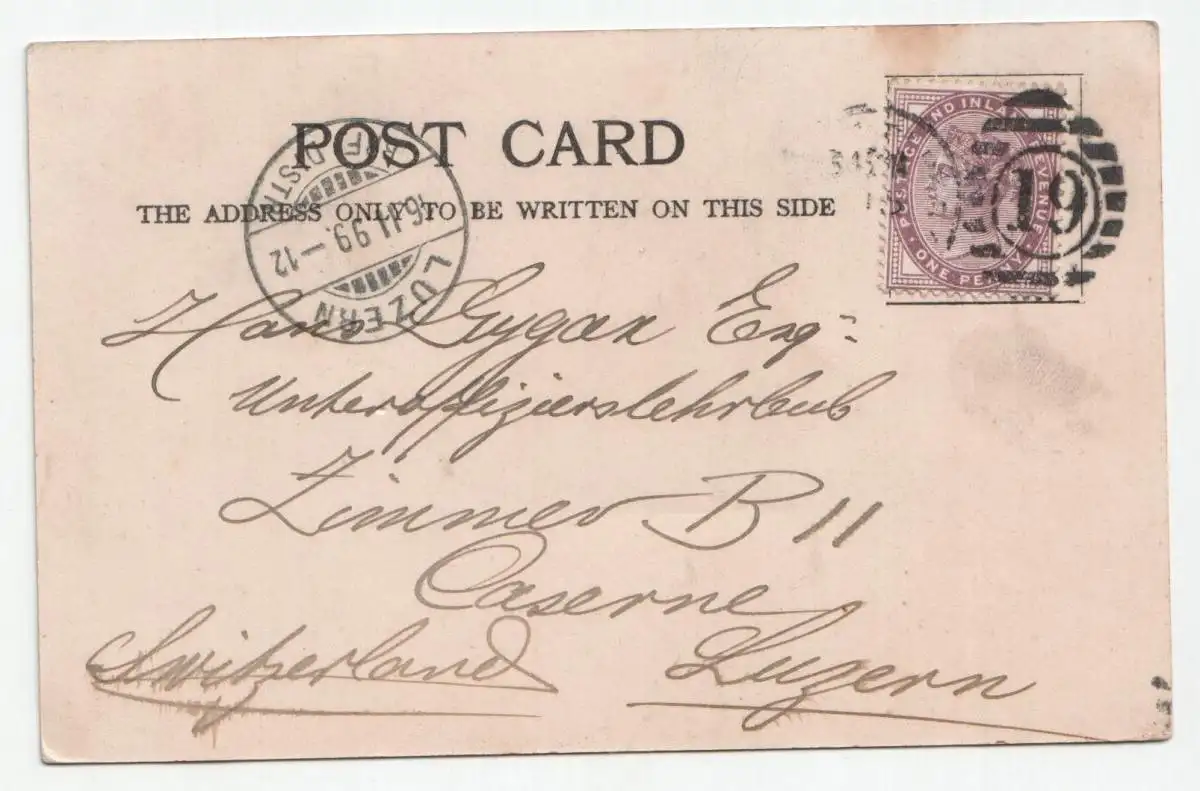 POST CARD
THE ADDRESS ONLY TO BE WRITTEN ON THIS SIDE
POSTAGE AND INLAND REVENUE
ONE PENNY
19
LUZERN
16.II.99.–12
BRIEF DISTR.
Hans Gygax Esq:
Unteroffizierslehrbub
Zimmer B 11
Caserne
Switzerland Luzern